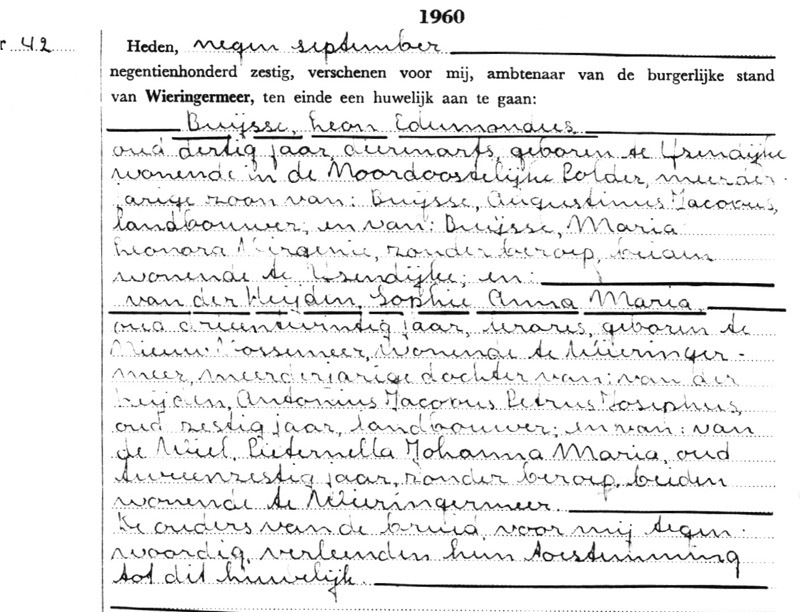 1960
r 42
Heden, negen september
negentienhonderd zestig, verschenen voor mij, ambtenaar van de burgerlijke stand
van Wieringermeer, ten einde een huwelijk aan te gaan:
Buijsse, Leon Edumondus
oud dertig jaar, dierenarts, geboren te IJzendijke
wonende in de Noordoostelijke Polder, meerder-
jarige zoon van: Buijsse, Augustinus Jacobus,
landbouwer; en van: Buijsse, Maria
Leonora Virginie, zonder beroep, beiden
wonende te IJzendijke; en:
van der Heijden, Sophie Anna Maria,
oud drieentwintig jaar, lerares, geboren te
Nieuw-Vossemeer, wonende te Wieringer-
meer, meerderjarige dochter van: van der
Heijden, Antonius Jacobus Petrus Josephus,
oud zestig jaar, landbouwer; en van: van
de Wiel, Pieternella Johanna Maria, oud
tweeenzestig jaar, zonder beroep, beiden
wonende te Wieringermeer
De ouders van de bruid, voor mij tegen-
woordig, verleenden hun toestemming
tot dit huwelijk